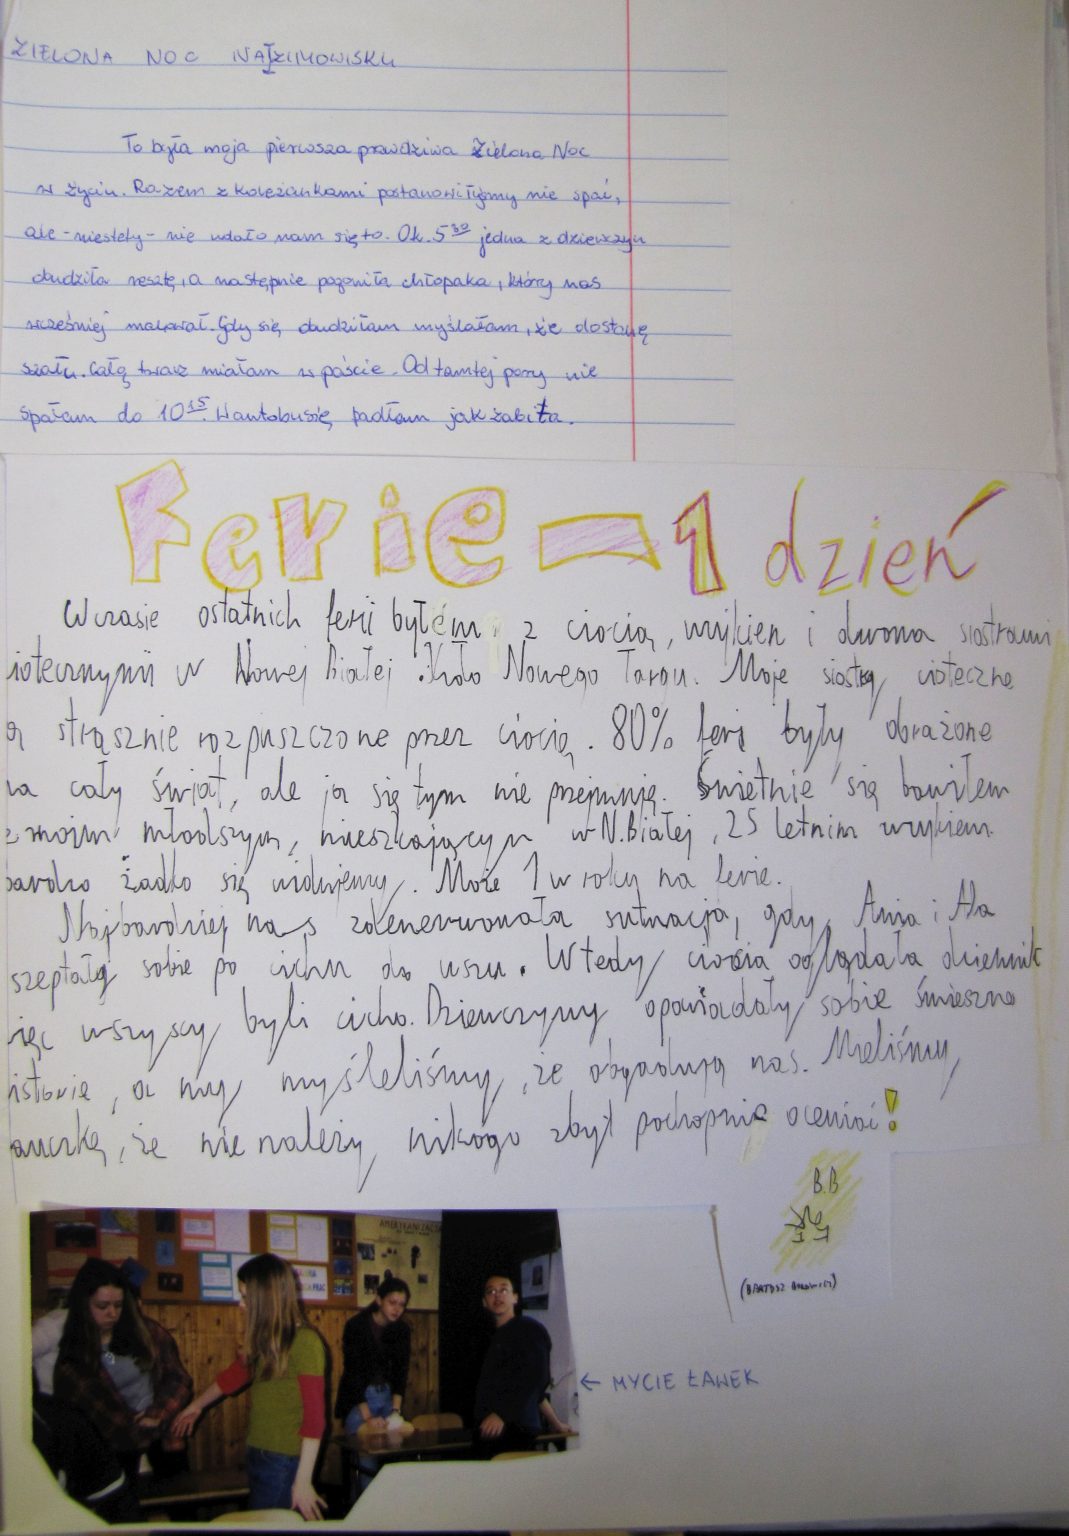 ZIELONA NOC NA ZIMOWISKU
To była moja pierwsza prawdziwa Zielona Noc
w życiu. Razem z koleżankami postanowiłyśmy nie spać,
ale - niestety - nie udało nam się to. Ok. 5³⁰ jedna z dziewczyn
obudziła resztę, a następnie pogoniła chłopaka, który nas
wcześniej malował. Gdy się obudziłam myślałam, że dostanę
szału. Całą twarz miałam w paście. Od tamtej pory nie
spałam do 10¹⁵. W autobusie padłam jak zabita.
Ferie - 1 dzień
W czasie ostatnich ferii byłem z ciocią, wujkiem i dwoma siostrami
iotecznymi w Nowej Białej koło Nowego Targu. Moje siostry cioteczne
są strasznie rozpuszczone przez ciocię. 80% ferii były obrażone
na cały świat, ale ja się tym nie przejmuję. Świetnie się bawiłem
z moim młodszym, mieszkającym w N.Białej, 25 letnim wujkiem.
bardzo żadko się widujemy. Może 1 w roku na ferie.
Najbardziej nas zdenerwowała sytuacja, gdy Ania i Ala
szeptały sobie po cichu do uszu. Wtedy ciocia oglądała dziennik
więc wszyscy byli cicho. Dziewczyny opowiadały sobie śmieszne
istorie, a my myśleliśmy, że obgadują nas. Mieliśmy
auczkę, że nie należy nikogo zbyt pochopnie oceniać!
B.B
(BARTOSZ
AMERYKANIZACJA
← MYCIE ŁAWEK